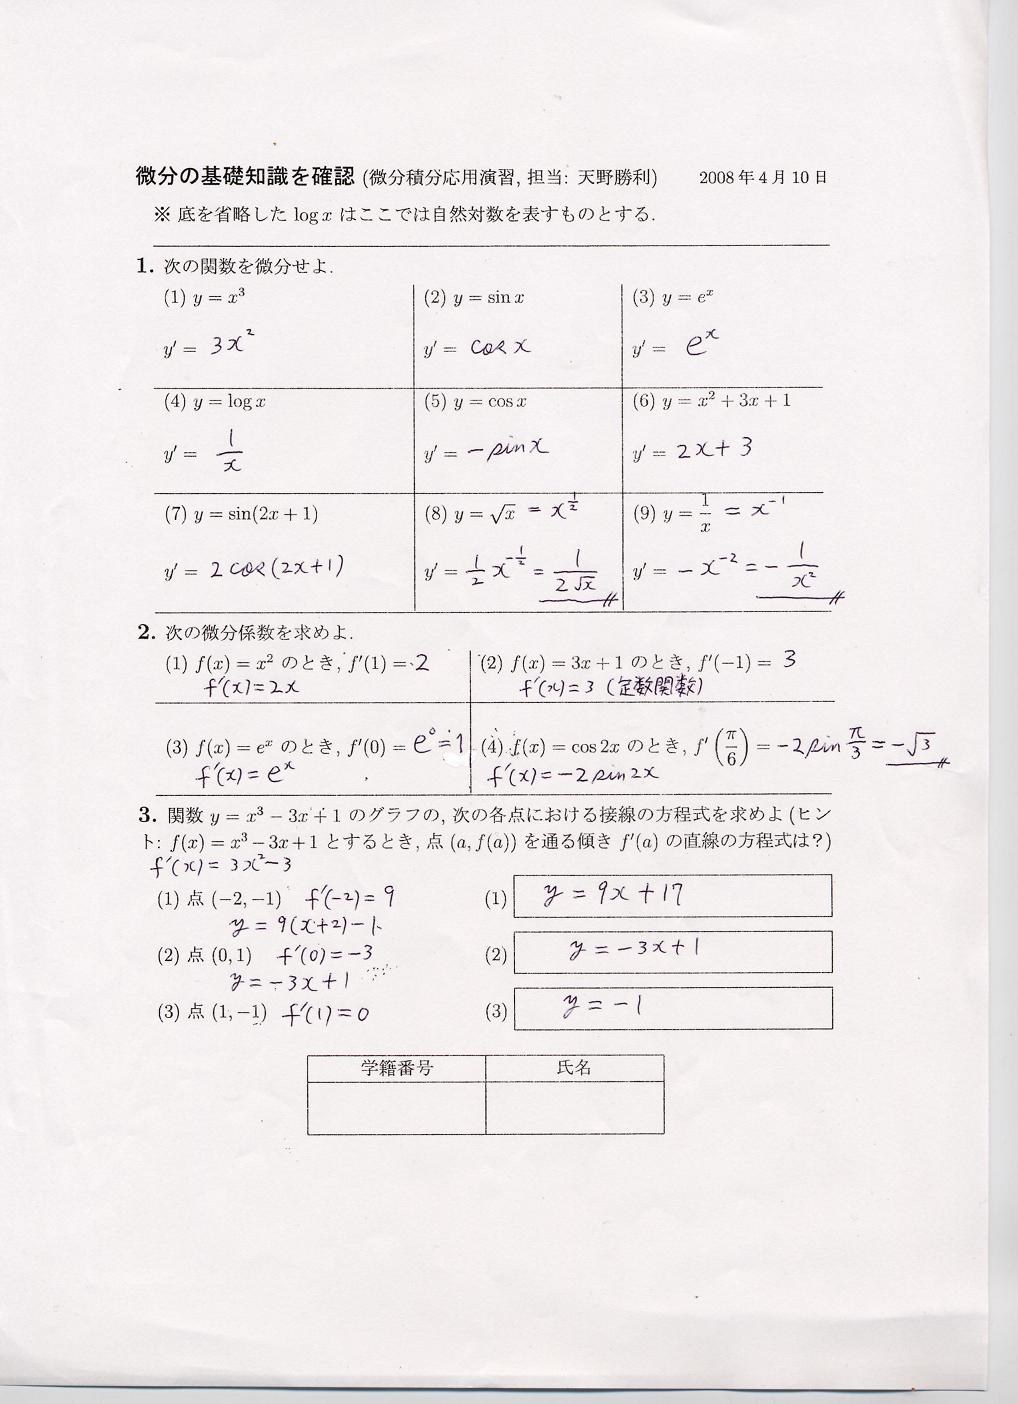 微分の基礎知識を確認 (微分積分応用演習, 担当: 天野勝利) 2008 年 4 月 10 日
※ 底を省略した log x はここでは自然対数を表すものとする.
1. 次の関数を微分せよ.
(1) y = x³ (2) y = sin x (3) y = eˣ
y′ = 3x² y′ = cos x y′ = eˣ
(4) y = log x (5) y = cos x (6) y = x² + 3x + 1
y′ = 1/x y′ = −sin x y′ = 2x + 3
(7) y = sin(2x + 1) (8) y = √x = x^(1/2) (9) y = 1/x = x⁻¹
y′ = 2 cos(2x+1) y′ = 1/2 x^(-1/2) = 1/(2√x) y′ = −x⁻² = −1/x²
2. 次の微分係数を求めよ.
(1) f(x) = x² のとき, f′(1) = 2 (2) f(x) = 3x + 1 のとき, f′(−1) = 3
f′(x) = 2x f′(x) = 3 (定数関数)
(3) f(x) = eˣ のとき, f′(0) = e⁰ = 1 (4) f(x) = cos 2x のとき, f′(π/6) = −2 sin π/3 = −√3
f′(x) = eˣ f′(x) = −2 sin 2x
3. 関数 y = x³ − 3x + 1 のグラフの, 次の各点における接線の方程式を求めよ (ヒン
ト: f(x) = x³ − 3x + 1 とするとき, 点 (a, f(a)) を通る傾き f′(a) の直線の方程式は？)
f′(x) = 3x² − 3
(1) 点 (−2, −1) f′(−2) = 9 (1) y = 9x + 17
y = 9(x+2) − 1
(2) 点 (0, 1) f′(0) = −3 (2) y = −3x + 1
y = −3x + 1
(3) 点 (1, −1) f′(1) = 0 (3) y = −1
学籍番号 氏名